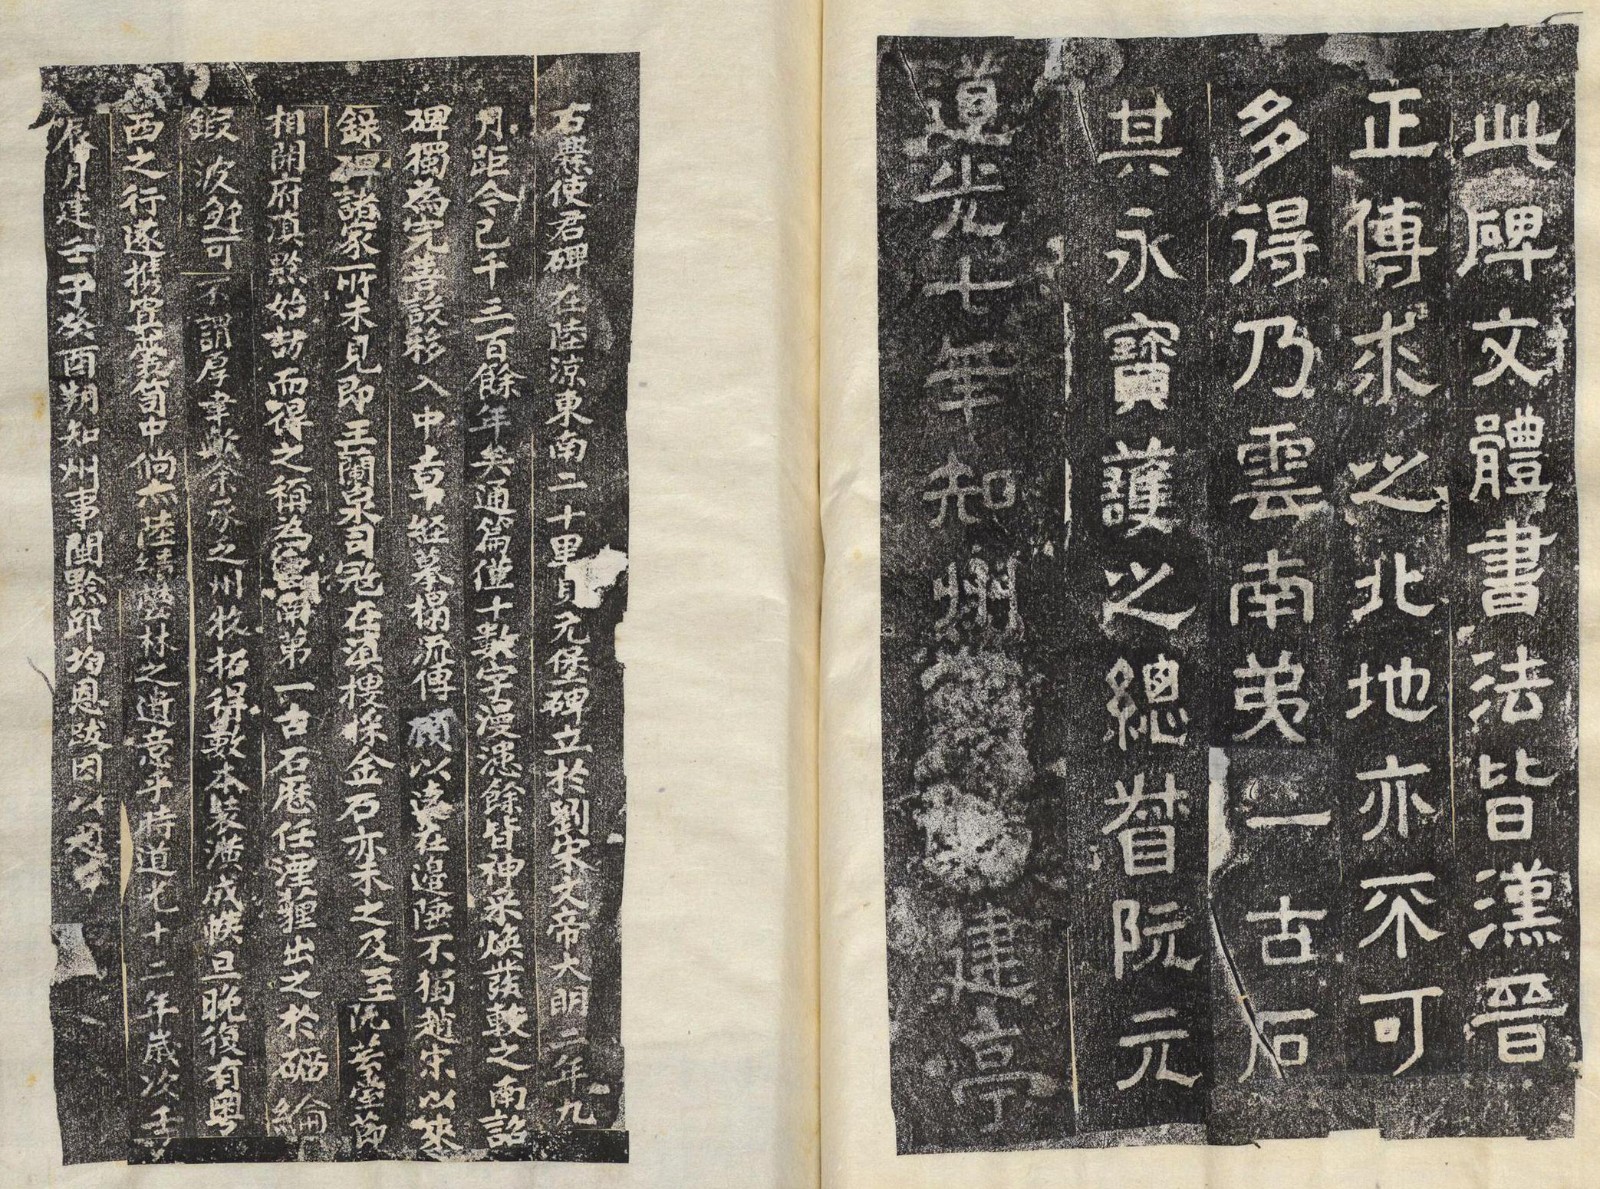 此碑文體書法皆漢晉
正傳求之北地亦不可
多得乃雲南苐一古石
其永寶護之總督阮元
道光七年知州建亭
右爨使君碑在陸涼東南二十里貞元堡碑立於劉宋文帝大明二年九
月距今已千三百餘年矣通篇僅十數字漫漶餘皆神采煥發較之南詔
碑獨為完善設移入中章經摹榻流傳顧以遠在邊陲不獨趙宋以來
錄碑諸家所未見即王蘭泉司寇在滇搜採金石亦未之及至阮芸臺節
相開府滇黔始訪而得之稱為雲南第一古石歷任湮霾出之於
不謂厚幸歟余承之州牧拓得數本裝潢成帙旦晚復有粵
西之行遂攜置笥中倘亦陸績鬱林之遺意乎時道光十二年歲次壬
辰月建壬子癸酉朔知州事閩黔邱均恩跋因以